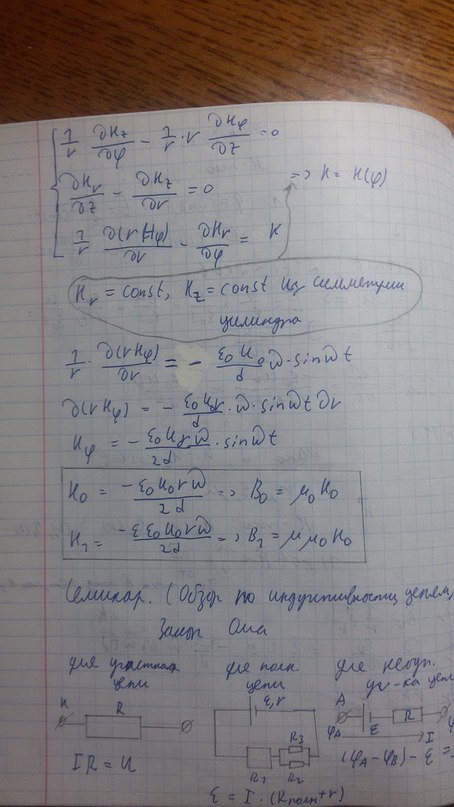 1/r ∂H_z/∂φ − 1/r · r ∂H_φ/∂z = 0
∂H_r/∂z − ∂H_z/∂r = 0 => H = H(φ)
1/r ∂(rH_φ)/∂r − ∂H_r/∂φ = K
H_r = const, H_z = const из симметрии
цилиндра
1/r · ∂(rH_φ)/∂r = − ε₀U₀/d ω · sin ωt
∂(rH_φ) = − ε₀U₀r/d · ω · sin ωt ∂r
H_φ = − ε₀U₀rω/2d · sin ωt
H₀ = −ε₀U₀rω/2d => B₀ = μ₀H₀
H₂ = −ε ε₀U₀rω/2d => B₂ = μμ₀H₀
Семинар. (Обзор по индуктивности цепям)
Закон Ома
для участка цепи
для полн. цепи
для неодн. уч-ка цепи
R
IR = U
ε, r
R₁
R₃
R₂
ε = I · (R полн + r)
A
φA
ε
R
I
(φA − φB) − ε =